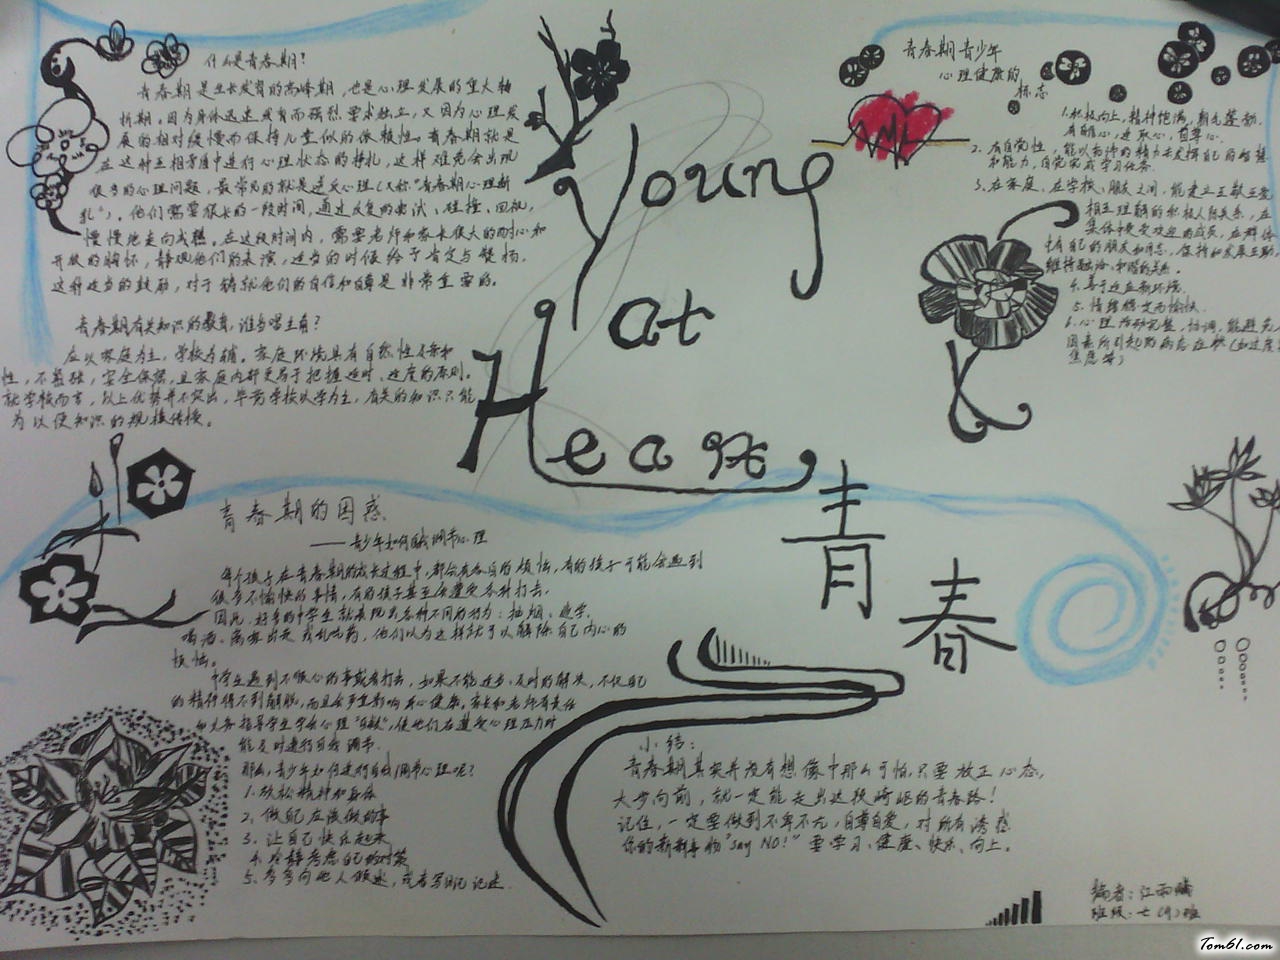 什么是青春期?
青春期是生长发育的高峰期,也是心理发展的重大转
折期。因为身体迅速发育而强烈要求独立,又因为心理发
展的相对缓慢而保持儿童似的依赖性。青春期就是
在这种互相矛盾中进行心理状态的挣扎,这样难免会出现
很多的心理问题,最常见的就是逆反心理(又称"青春期心理断
乳")。他们需要很长的一段时间,通过反复的尝试、碰撞、回视,
慢慢地走向成熟。在这段时间内,需要老师和家长很大的耐心和
开放的胸怀,静观他们的表演,适当的时候给予肯定与赞扬,
这种适当的鼓励,对于铸就他们的自信和自尊是非常重要的。
青春期有关知识的教育,谁当唱主角?
应以家庭为主,学校为辅。家庭环境具有自然性、亲和
性,不紧张,安全保密,且家庭内部更易于把握适时、适度的原则。
就学校而言,以上优势并不突出,毕竟学校以学为主,有关的知识只能
为以便知识的规模传授。
Young
at
Heart
青春
青春期青少年
心理健康的
标志
1.积极向上,精神饱满,朝气蓬勃,
有雄心,进取心,自尊心。
2.有自觉性,能以充沛的精力去发挥自己的智慧
和能力,自觉完成学习任务。
3.在家庭、在学校、朋友之间,能建立互敬互爱
相互理解的积极人际关系,在
集体中是受欢迎的成员,在群体
中有自己的朋友和同志,保持和发展互助,
维持融洽、和谐的关系。
4.善于适应新环境。
5.情绪稳定而愉快。
6.心理活动完整,协调,能避免
因素所引起的病态症状(如过度
焦虑等)
青春期的困惑
——青少年如何自我调节心理
每个孩子在青春期的成长过程中,都会有各自的烦恼,有的孩子可能会遇到
很多不愉快的事情,有的孩子甚至会遭受各种打击,
因此,好多的中学生就表现出各种不同的行为:抽烟、逃学、
喝酒、离家出走或乱吃药,他们以为这样就可以解除自己内心的
烦恼。
中学生遇到不顺心的事或者打击,如果不能进步、及时的解决,不仅自己
的精神得不到解脱,而且会严重影响身心健康,家长和老师有责任
和义务指导学生学会心理"自救",使他们在遭受心理压力时
能及时进行自我调节.
那么,青少年如何进行自我调节心理呢?
1.放松精神和身体
2.做自己应该做的事
3.让自己快乐起来
4.冷静考虑自己的对策
5.多多向他人倾述,或者写日记记述.
小结:
青春期其实并没有想像中那么可怕,只要放正心态,
大步向前,就一定能走出这段崎岖的青春路!
记住,一定要做到不卑不亢,自尊自爱,对所有诱惑
你的新鲜事物"Say NO!"要学习、健康、快乐、向上。
编者:江雨
班级:七(9)班
Tom61.com